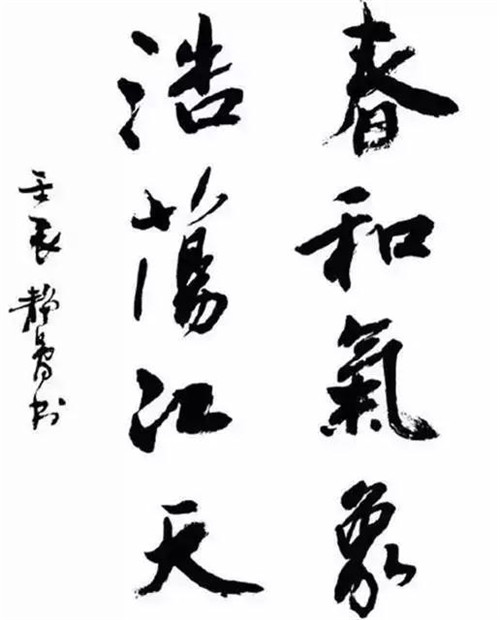 春和氣象
浩蕩江天
壬辰 静